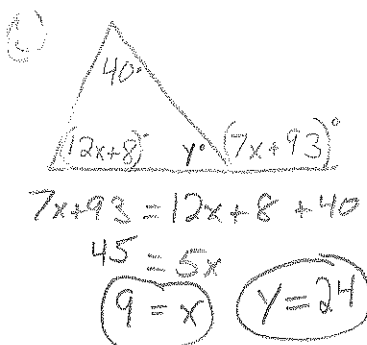 40°
(12x+8)° y° (7x+93)°
7x+93 = 12x+8 +40
45 = 5x
9 = x y = 24